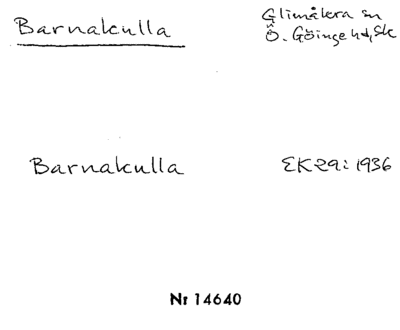 Barnakulla
Glimåkra sn
Ö. Göinge hd, Sk
Barnakulla
EK29: 1936
Nr 14640